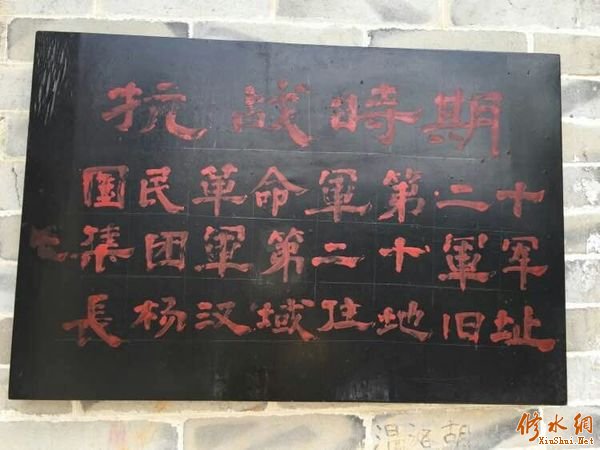 抗战時期
國民革命軍第二十
七集团軍第二十軍军
長杨汉域住地旧址
修水網
XiuShui.Net